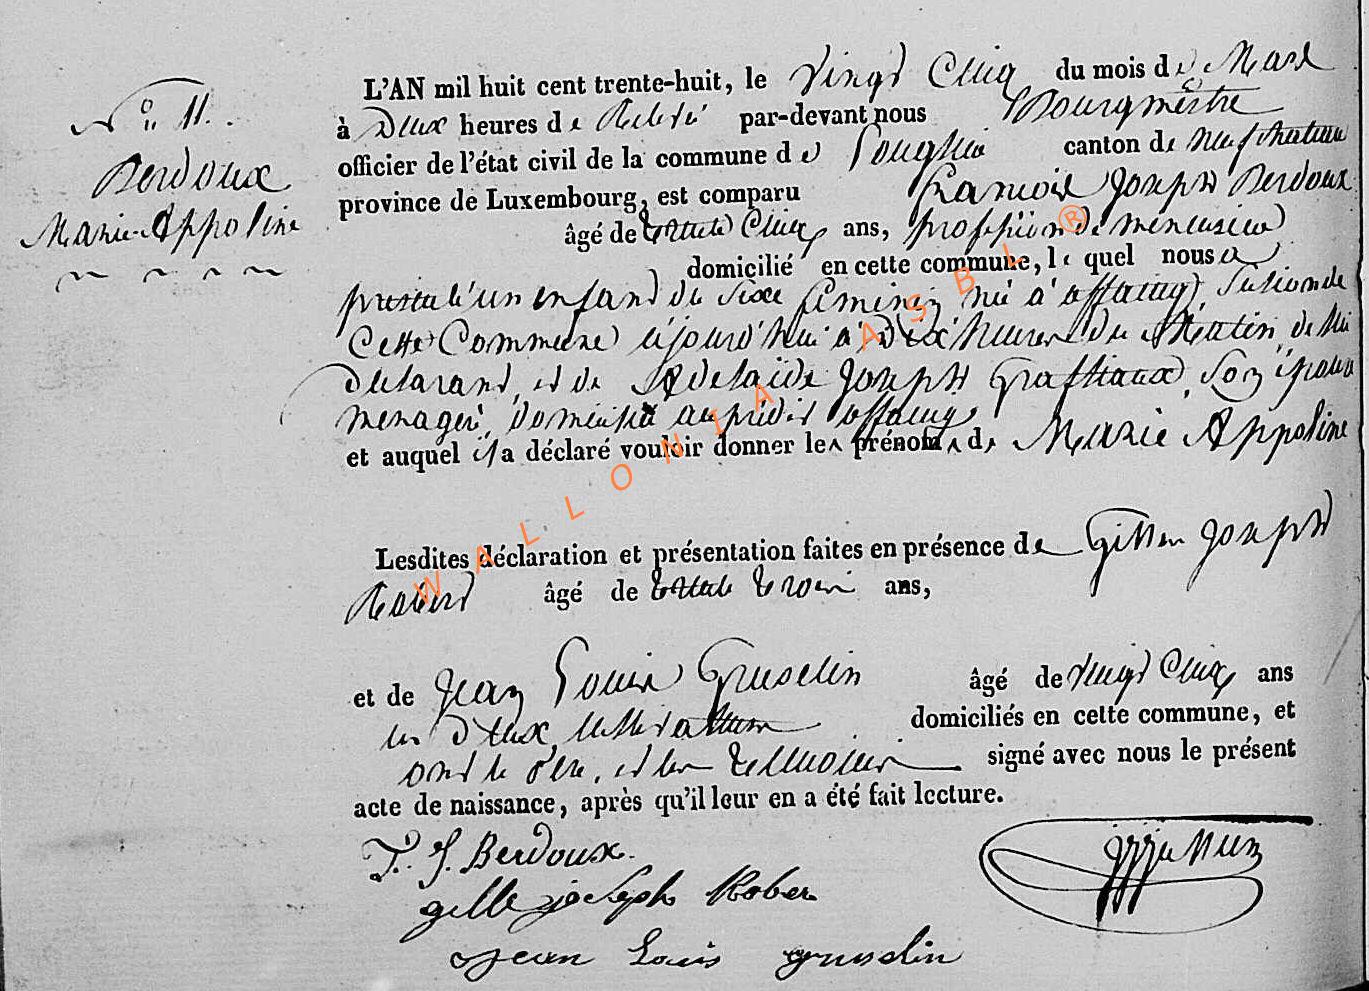 N° 11.
Berdoux
Marie Appoline
L'AN mil huit cent trente-huit, le vingt cinq du mois de Mars
à Deux heures de Relevé par-devant nous Bourgmestre
officier de l'état civil de la commune de Longlier canton de neufchateau
province de Luxembourg, est comparu francois Joseph Berdoux
âgé de trente Cinq ans, profession de menuisier
domicilié en cette commune, le quel nous a
presenté un enfant du sexe feminin né a offaing, Section de
Cette Commune aujourd'hui a Dix heures du Matin, de lui
declarant, et de Adelaide Joseph Graftiaux, Son épouse
menagere, Domiciliée au prédit offaing
et auquel il a déclaré vouloir donner les prénoms de Marie Appoline
Lesdites déclaration et présentation faites en présence de Gilles Joseph
Robert âgé de trente trois ans,
et de Jean Louis Gruselin âgé de vingt Cinq ans
les Deux domiciliés en cette commune, et
ont le Pere, et les temoins signé avec nous le présent
acte de naissance, après qu'il leur en a été fait lecture.
F. J. Berdoux.
gille joseph Rober
jean Louis gruselin
WALLONIA ASBL ®